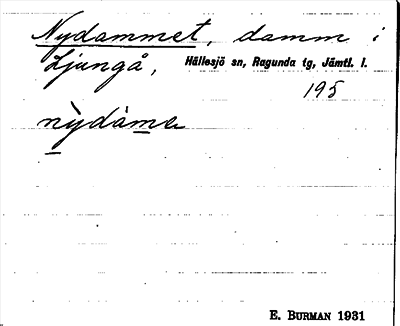 Nydammet, damm i
Ljungå, Hällesjö sn, Ragunda tg, Jämtl. l.
195
nỳdàmə
E. BURMAN 1931